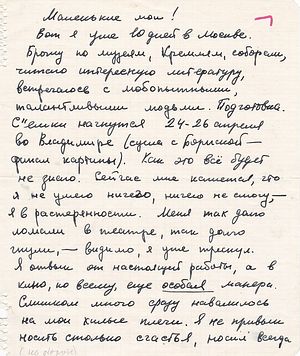 Маленькие мои!
Вот я уже 10 дней в Москве.
Брожу по музеям, Кремлям, соборам,
читаю интересную литературу,
встречаюсь с любопытными,
талантливыми людьми. Подготовка.
Съемки начнутся 24-26 апреля
во Владимире (сцена с Бориской —
финал картины). Как это всё будет
не знаю. Сейчас мне кажется, что
я не умею ничего, ничего не смогу, —
я в растерянности. Меня так долго
ломали в театре, так долго
гнули, — видимо, я уже треснул.
Я отвык от настоящей работы, а в
кино, ко всему, еще особая манера.
Слишком много сразу навалилось
на мои хилые плечи. Я не привык
носить столько счастья, носил всегда